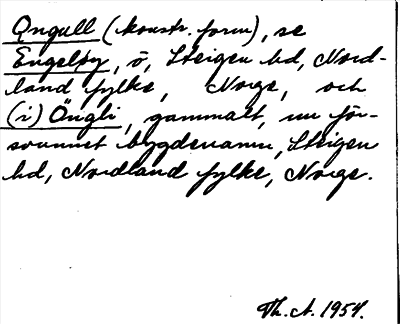 Qngull (konstr. form), se
Engeløy, ö, Steigen hd, Nord-
land fylke, Norge, och
(i) Öngli, gammalt, nu för-
svunnet bygdenamn, Steigen
hd, Nordland fylke, Norge.
Th. A. 1954.